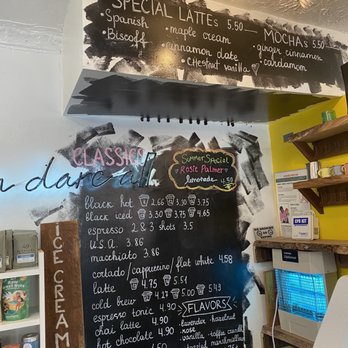 SPECIAL LATTEs 5.50
• Spanish
• maple cream
Biscoff
• cinnamon date
• CHestnut vanilla
MOCHAs 5.50
• ginger cinnamon
• cardamom
CLASSICS
n dare
Summer Special
Rosie Palmer
lemonade
4.50
black hot 2.66 3.30 3.75
black iced 3.30 3.75 4.65
espresso 2 & 3 shots 3.5
U.S.A. 3.86
macchiato 3.86
cortado/cappuccino/flat white 4.58
latte 4.75 5.51
cold brew 4.27 5.00 5.43
espresso tonic 4.90
chai latte 4.90
hot chocolate 4.90
FLAVORS
lavender
rose
vanilla
toffee
marshmallow
ICE CREAM